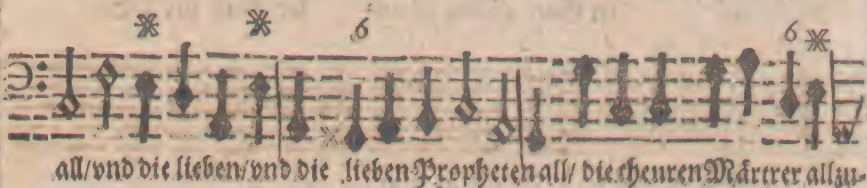 6 6
all/vnd die lieben/vnd die lieben Propheten all/ die theuren Märtrer allzu-